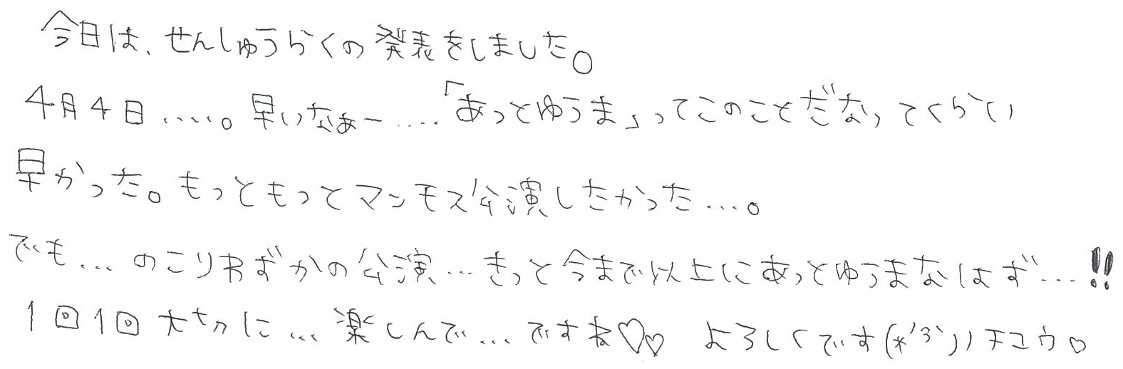 今日は、せんしゅうらくの発表をしました。
4月4日.....。早いなぁー....「あっとゆうま」ってこのことだなってくらい
早かった。もっともっとマンモス公演したかった...。
でも...のこりわずかの公演...きっと今まで以上にあっとゆうまなはず...!!
1回1回大切に...楽しんで...ですね♡♡ よろしくです(*'3'))チュウ♡